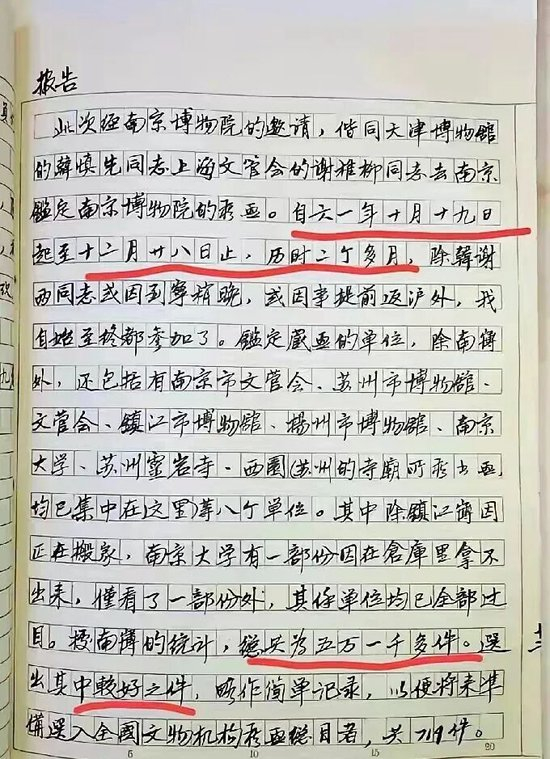 报告
此次经南京博物院的邀请，偕同天津博物館
的韓慎先同志上海文管会的谢稚柳同志去南京
鑑定南京博物院的藏画。自六一年十月十九日
起至十二月廿八日止，历时二个多月，除韓谢
两同志或因到寧稍晚，或因事提前返沪外，我
自始至终都参加了。鑑定藏画的单位，除南博
外，还包括有南京市文管会、苏州市博物館、
文管会、鎮江市博物館、揚州市博物館、南京
大学、苏州靈岩寺、西園(苏州的寺廟所藏书画，
均已集中在这里)等八个单位。其中除鎮江
正在搬家，南京大学有一部份因在倉庫里拿不
出来，僅看了一部份外，其余单位均已全部过
目。據南博的统计，總共为五万一千多件。選
出其中較好之件，略作简单记录，以便将来準
備選入全國文物机构藏画總目者，共719件。
十二
5 10 15 20